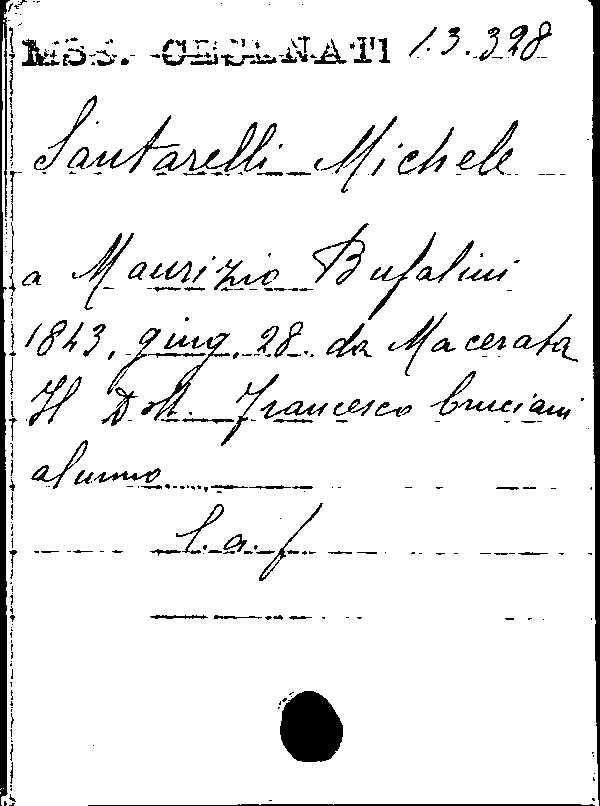 MSS. CESENATI 1.3.328
Santarelli Michele
a Maurizio Bufalini
1843, giug. 28. da Macerata
Il Dott. Francesco Cruciani
alunno
L. a. f